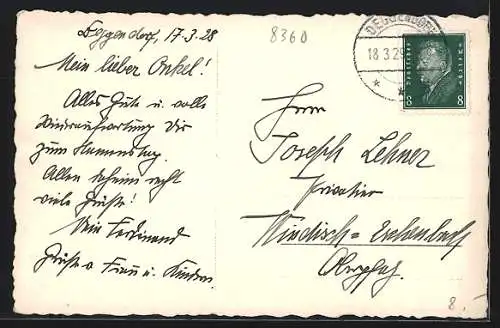 Deggendorf, 17.3.28
8360
DEGGENDORF
18.3.29
Mein lieber Onkel!
Alles Gute u. volle
Wiederaufwartung Dir
zum Namenstag.
Allen daheim recht
viele Grüße!
Dein Ferdinand
Grüße v. Frau u. Kinder.
Deutsches Reich
8 8
Herrn
Joseph Lehner
Privatier
Windisch=Eschenbach
Oberpfalz.
8,-